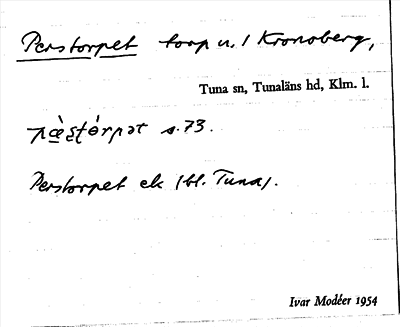 Perstorpet torp u. / Kronoberg,
Tuna sn, Tunaläns hd, Klm. l.
pæ̀ʂʈórpət s. 73.
Perstorpet ek (bl. Tuna).
Ivar Modéer 1954